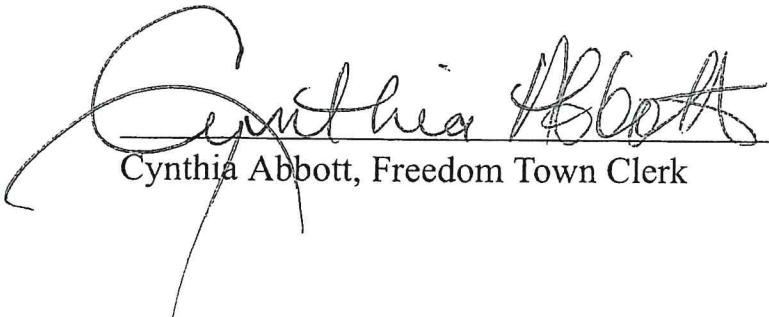 Cynthia Abbott
Cynthia Abbott, Freedom Town Clerk